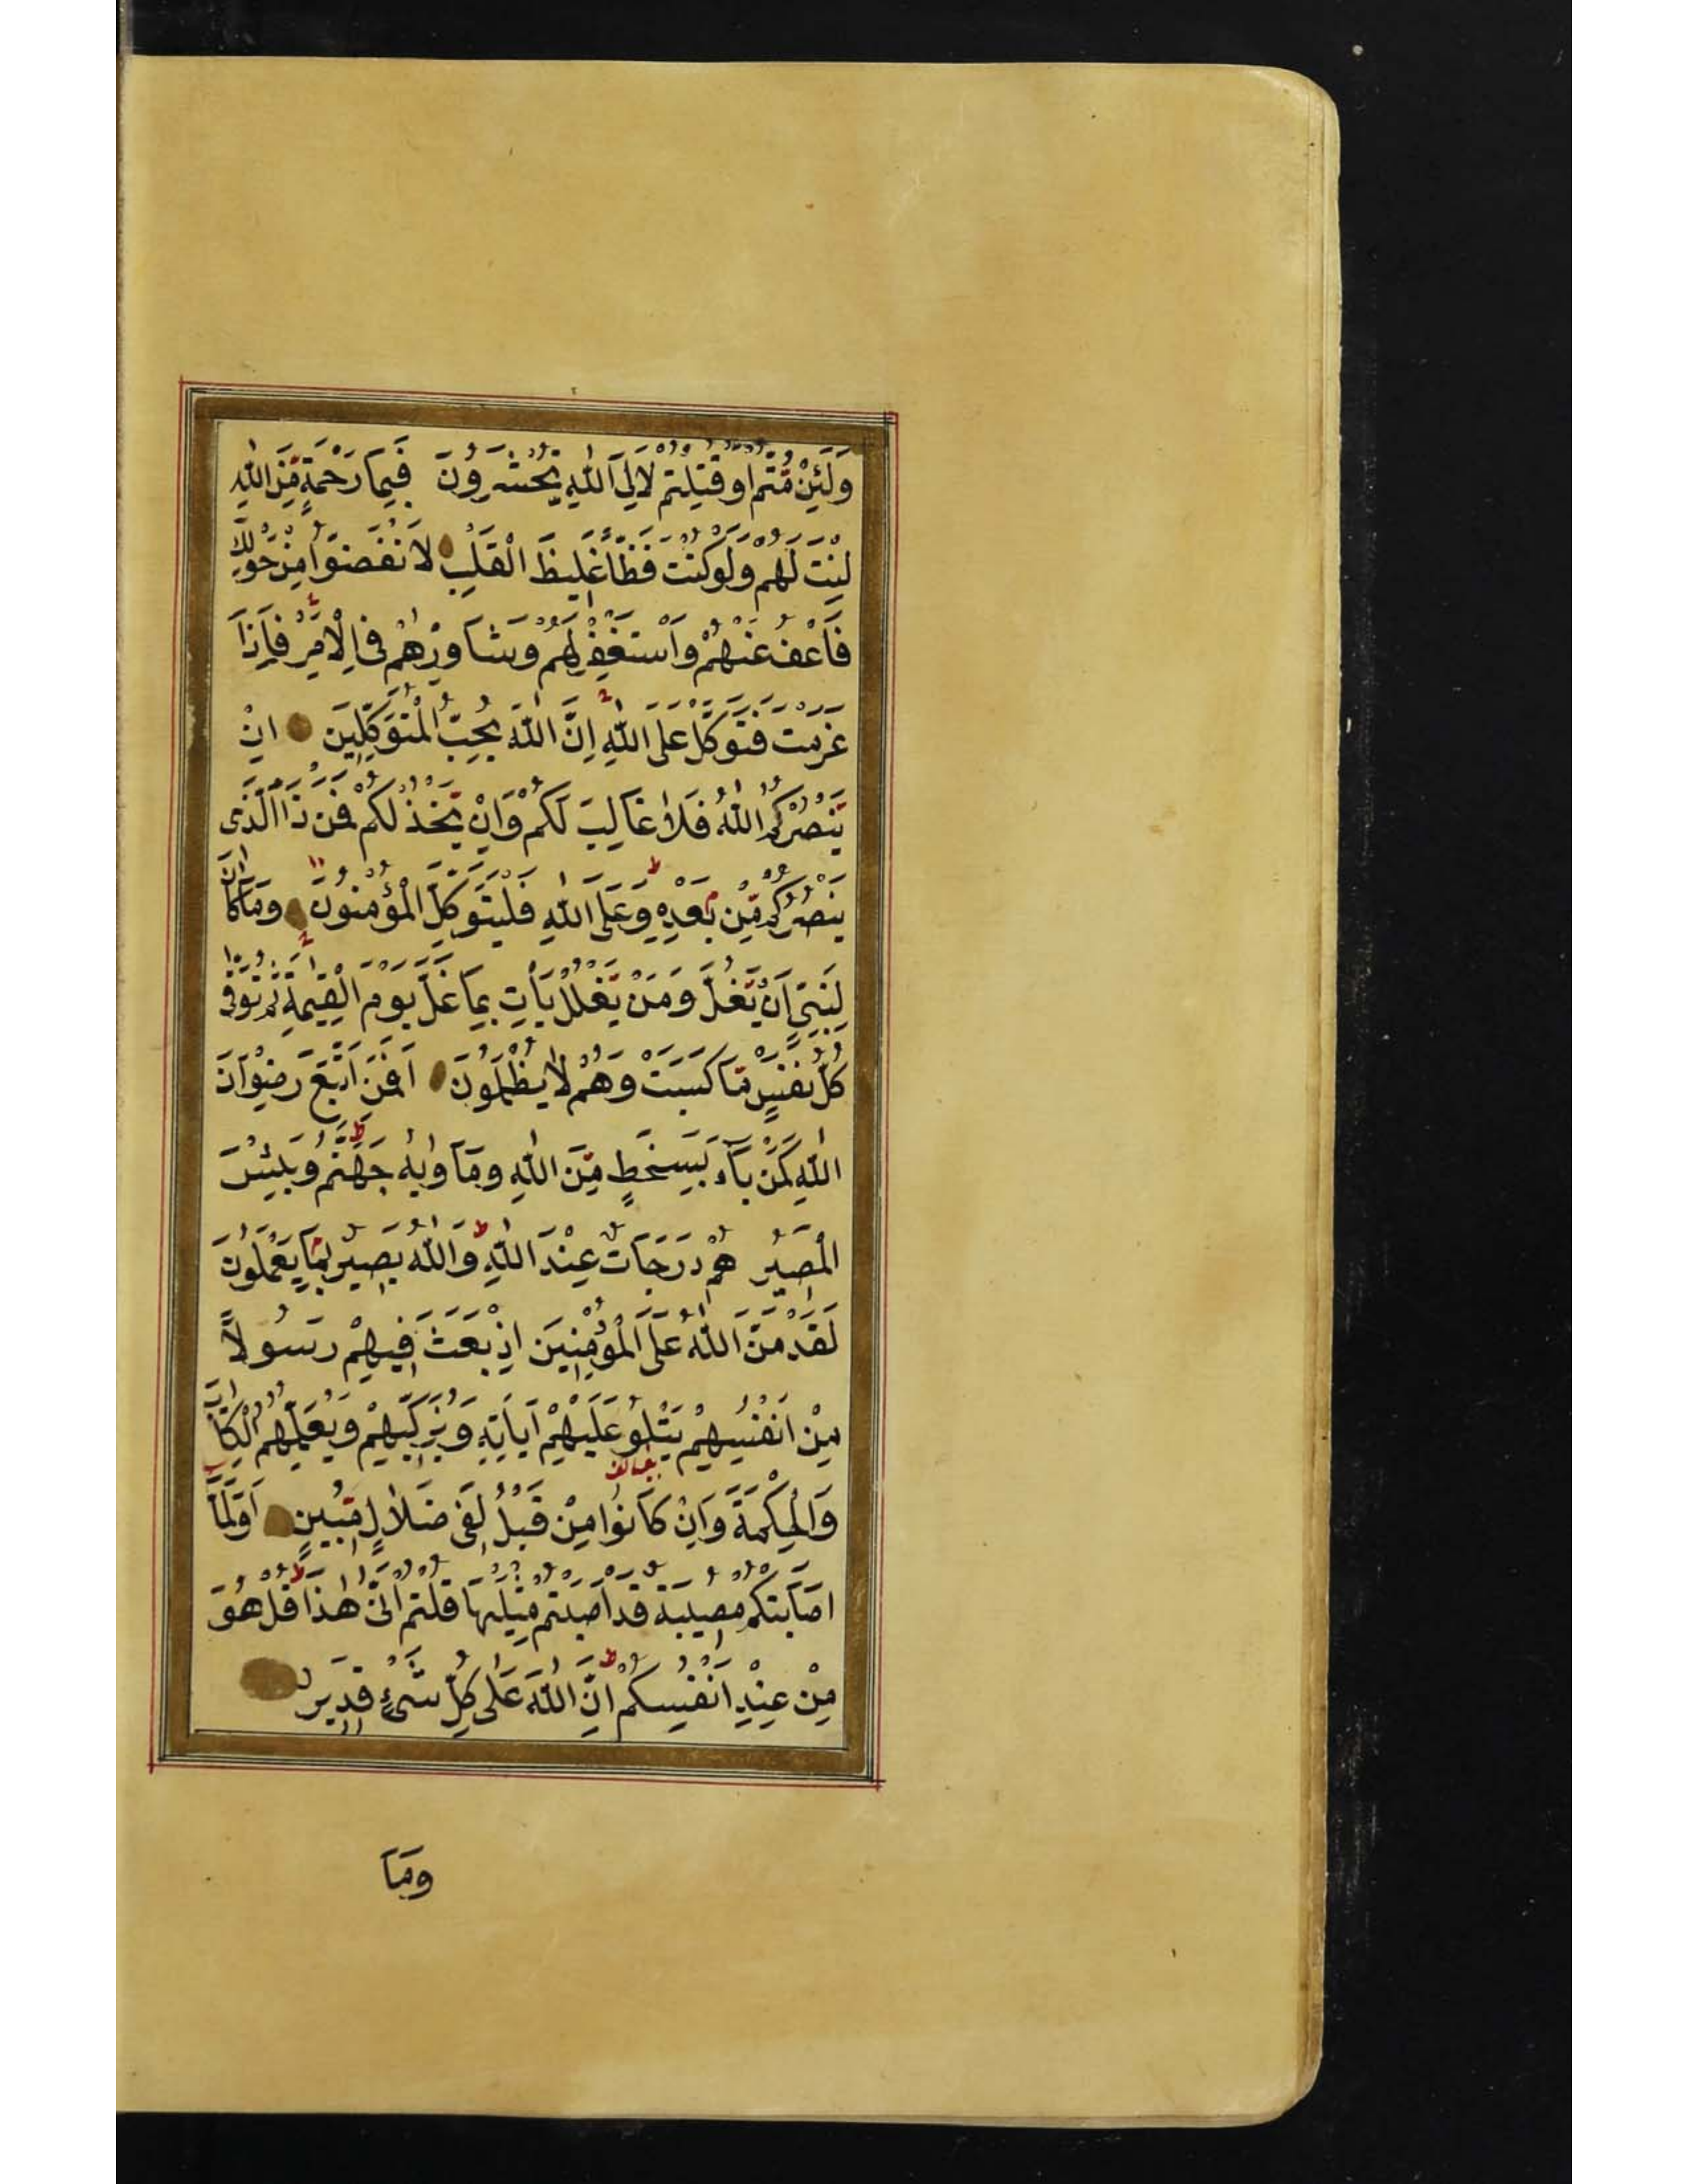 وَلَئِنْ مُتُّمْ اَوْ قُتِلْتُمْ لَاِلَى اللّٰهِ تُحْشَرُونَ فَبِمَا رَحْمَةٍ مِّنَ اللّٰهِ
لِنْتَ لَهُمْ وَلَوْ كُنْتَ فَظًّا غَلِيظَ الْقَلْبِ لَانْفَضُّوا مِنْ حَوْلِكَ
فَاَعْفُ عَنْهُمْ وَاَسْتَغْفِرْ لَهُمْ وَشَاوِرْهُمْ فِى الْاَمْرِ فَاِذَا
عَزَمْتَ فَتَوَكَّلْ عَلَى اللّٰهِ اِنَّ اللّٰهَ يُحِبُّ الْمُتَوَكِّلِينَ اِنْ
يَنْصُرْكُمُ اللّٰهُ فَلَا غَالِبَ لَكُمْ وَاِنْ يَخْذُلْكُمْ فَمَنْ ذَا الَّذِى
يَنْصُرُكُمْ مِّنْ بَعْدِهِ وَعَلَى اللّٰهِ فَلْيَتَوَكَّلِ الْمُؤْمِنُونَ وَمَا كَانَ
لِنَبِىٍّ اَنْ يَغُلَّ وَمَنْ يَغْلُلْ يَأْتِ بِمَا غَلَّ يَوْمَ الْقِيٰمَةِ ثُمَّ تُوَفّٰى
كُلُّ نَفْسٍ مَّا كَسَبَتْ وَهُمْ لَا يُظْلَمُونَ اَفَمَنِ اتَّبَعَ رِضْوَانَ
اللّٰهِ كَمَنْ بَآءَ بِسَخَطٍ مِّنَ اللّٰهِ وَمَاْوٰيهُ جَهَنَّمُ وَبِئْسَ
الْمَصِيرُ هُمْ دَرَجَاتٌ عِنْدَ اللّٰهِ وَاللّٰهُ بَصِيرٌ بِمَا يَعْمَلُونَ
لَقَدْ مَنَّ اللّٰهُ عَلَى الْمُؤْمِنِينَ اِذْ بَعَثَ فِيهِمْ رَسُولًا
مِنْ اَنْفُسِهِمْ يَتْلُو عَلَيْهِمْ اٰيَاتِهِ وَيُزَكِّيهِمْ وَيُعَلِّمُهُمُ الْكِتَابَ
وَالْحِكْمَةَ وَاِنْ كَانُوا مِنْ قَبْلُ لَفِى ضَلَالٍ مُّبِينٍ اَوَلَمَّا
اَصَابَتْكُمْ مُصِيبَةٌ قَدْ اَصَبْتُمْ مِثْلَيْهَا قُلْتُمْ اَنّٰى هٰذَا قُلْ هُوَ
مِنْ عِنْدِ اَنْفُسِكُمْ اِنَّ اللّٰهَ عَلٰى كُلِّ شَىْءٍ قَدِيرٌ
وَمَا